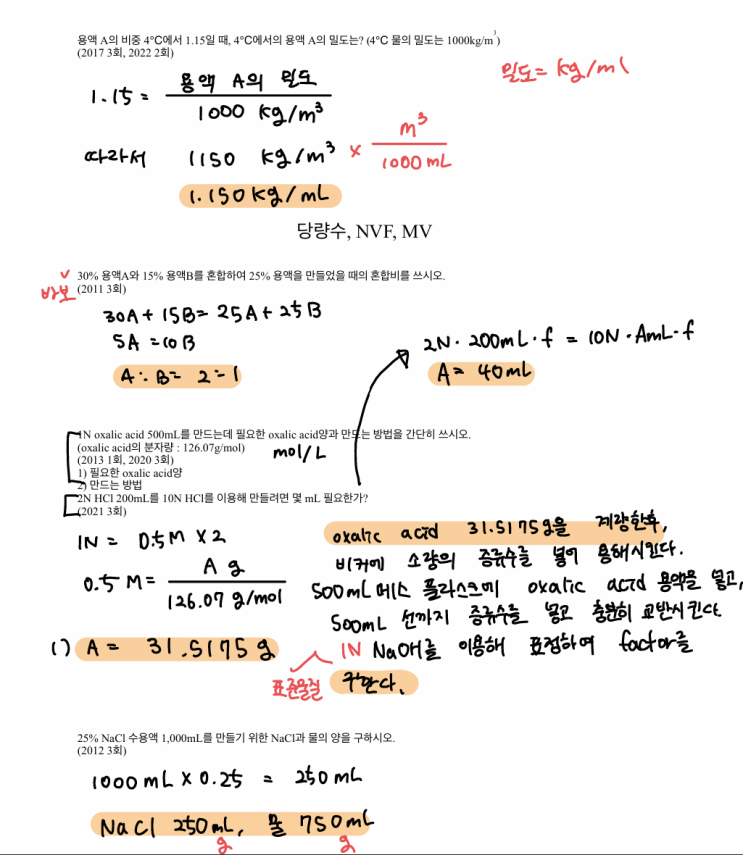 용액 A의 비중 4°C에서 1.15일 때, 4°C에서의 용액 A의 밀도는? (4°C 물의 밀도는 1000kg/m³)
(2017 3회, 2022 2회)
밀도= kg/ml
1.15 = 용액 A의 밀도 / 1000 kg/m³
따라서 1150 kg/m³ × m³ / 1000 mL
1.150kg/mL
당량수, NVF, MV
✓ 30% 용액A와 15% 용액B를 혼합하여 25% 용액을 만들었을 때의 혼합비를 쓰시오.
바보 (2011 3회)
30A + 15B = 25A + 25B
5A = 10B
A : B = 2 : 1
2N · 200mL · f = 10N · AmL · f
A = 40mL
1N oxalic acid 500mL를 만드는데 필요한 oxalic acid양과 만드는 방법을 간단히 쓰시오.
(oxalic acid의 분자량 : 126.07g/mol)
(2013 1회, 2020 3회)
mol/L
1) 필요한 oxalic acid양
2) 만드는 방법
2N HCl 200mL를 10N HCl를 이용해 만들려면 몇 mL 필요한가?
(2021 3회)
1N = 0.5M × 2
0.5 M = A g / 126.07 g/mol
1) A = 31.5175 g
oxalic acid 31.5175g을 계량한후,
비커에 소량의 증류수를 넣어 용해시킨다.
500mL 메스 플라스크에 oxalic acid 용액을 넣고,
500mL 선까지 증류수를 넣고 충분히 교반시킨다.
1N NaOH를 이용해 표정하여 factor를
표준물질
구한다.
25% NaCl 수용액 1,000mL를 만들기 위한 NaCl과 물의 양을 구하시오.
(2012 3회)
1000 mL × 0.25 = 250 mL
NaCl 250mL, 물 750mL
g g